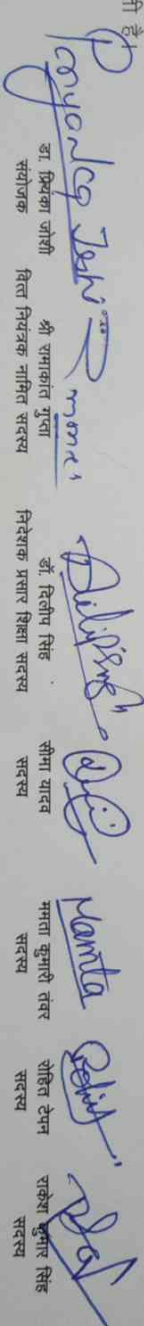 ी है।
Priyanka Joshi
डा. प्रियंका जोशी
संयोजक
श्री रामाकांत गुप्ता
वित्त नियंत्रक नामित सदस्य
Dilip Singh
डॉ. दिलीप सिंह
निदेशक प्रसार शिक्षा सदस्य
सीमा यादव
सदस्य
Mamta
ममता कुमारी तंवर
सदस्य
Rohit
रोहित टेपन
सदस्य
राकेश कुमार सिंह
सदस्य